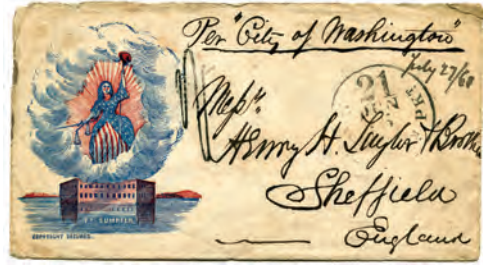 Per "City of Washington"
July 27/61
21
PKT
Messrs.
Henry H. Taylor & Brother
Sheffield
England
FT. SUMPTER.
COPYRIGHT SECURED.